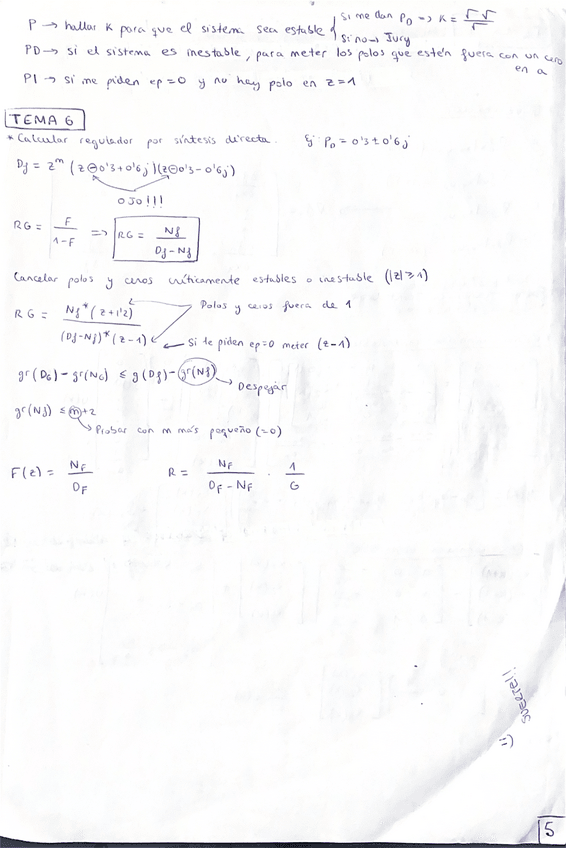 P → hallar K para que el sistema sea estable { Si me dan P₀ => K = √ √ / √
Si no → Jury
PD → si el sistema es inestable, para meter los polos que estén fuera con un cero en a
PI → si me piden ep=0 y no hay polo en z=1
TEMA 6
* Calcular regulador por síntesis directa. Ej: P₀ = 0'3 ± 0'6j
Df = z^m (z⊖0'3+0'6j)(z⊖0'3-0'6j)
OJO!!!
RG = F / (1-F) => RG = Nf / (Df-Nf)
Cancelar polos y ceros críticamente estables o inestable (|z|≥1)
RG = Nf*(z+1'2) / (Df-Nf)*(z-1)
Polos y ceros fuera de 1
Si te piden ep=0 meter (z-1)
gr(DG) - gr(NG) ≤ g(Df) - gr(Nf) → Despejar
gr(Nf) ≤ m+2
→ Probar con m más pequeño (=0)
F(z) = NF / DF R = NF / (DF - NF) · 1 / G
SUERTE!!
=)
5